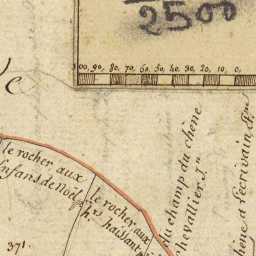 2500
100, 90, 80, 70, 60, 50, 40, 30, 20, 10, 0
le rocher aux
Enfans de Noël
le rocher aux
haissant
du champ du chêne
Chevallier J.n
chêne à l'ecrivain
371.